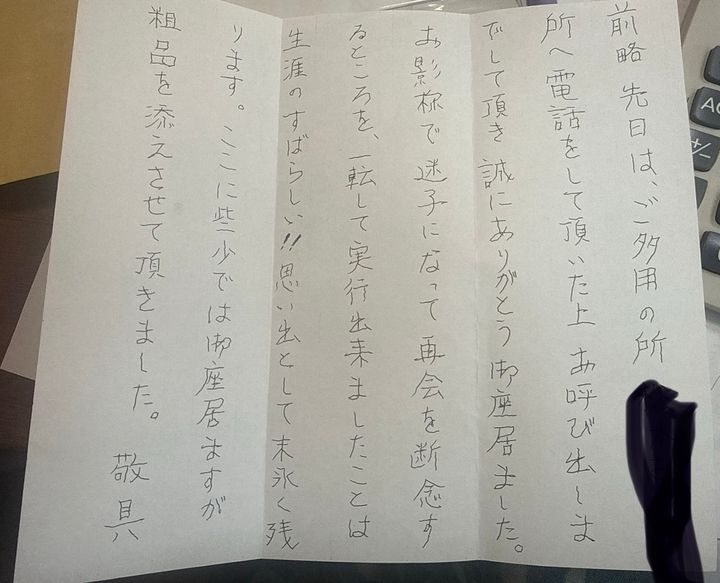 前略 先日は、ご多用の所
所へ電話をして頂いた上 お呼び出しま
でして頂き 誠にありがとう御座居ました。
お影様で迷子になって再会を断念す
るところを、一転して実行出来ましたことは
生涯のすばらしい!!思い出として末永く残
ります。ここに些少では御座居ますが
粗品を添えさせて頂きました。
敬具
AC
+/-